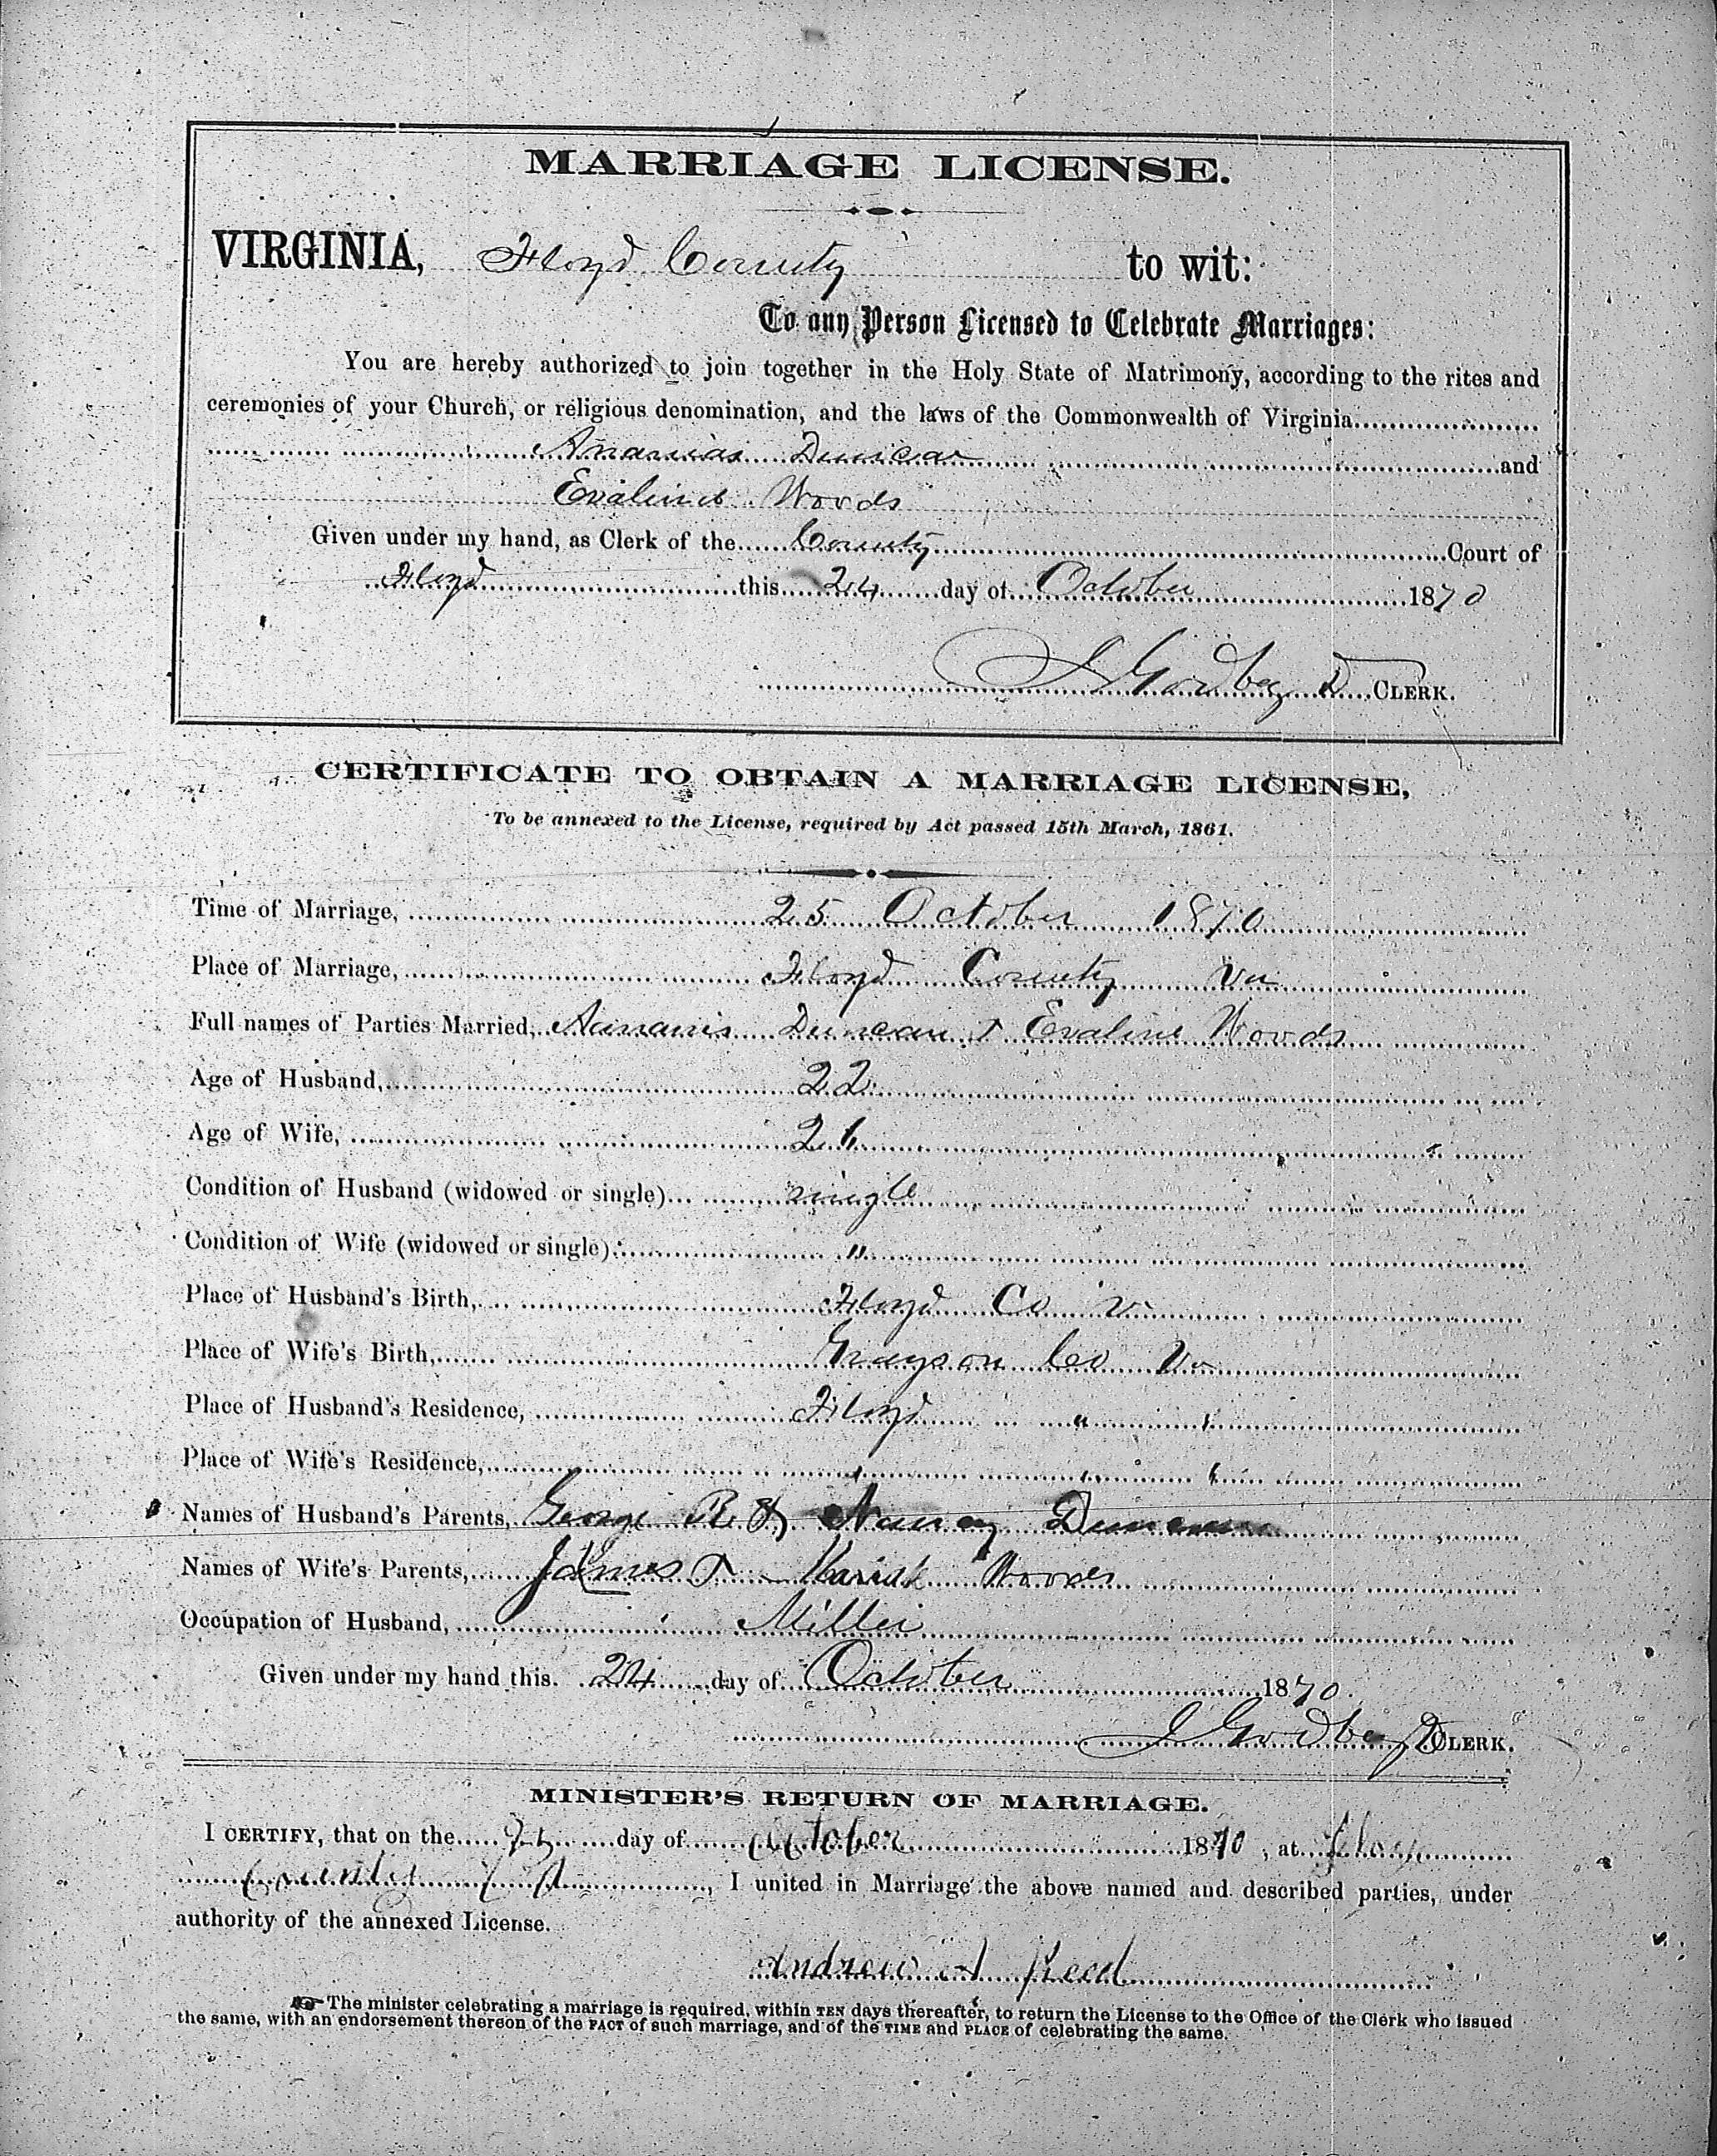 MARRIAGE LICENSE.
VIRGINIA, Floyd County to wit:
To any Person Licensed to Celebrate Marriages:
You are hereby authorized to join together in the Holy State of Matrimony, according to the rites and
ceremonies of your Church, or religious denomination, and the laws of the Commonwealth of Virginia
Ananias Duncan and
Evaline Woods
Given under my hand, as Clerk of the County Court of
Floyd this 24 day of October 1870
J Godbey D CLERK.
CERTIFICATE TO OBTAIN A MARRIAGE LICENSE,
To be annexed to the License, required by Act passed 15th March, 1861.
Time of Marriage, 25 October 1870
Place of Marriage, Floyd County Va
Full names of Parties Married, Ananias Duncan & Evaline Woods
Age of Husband, 22
Age of Wife, 21
Condition of Husband (widowed or single) single
Condition of Wife (widowed or single) "
Place of Husband's Birth, Floyd Co Va
Place of Wife's Birth, Grayson Co Va
Place of Husband's Residence, Floyd " "
Place of Wife's Residence, " " "
Names of Husband's Parents, George R & Nancy Duncan
Names of Wife's Parents, James & Woods
Occupation of Husband, Miller
Given under my hand this 24 day of October 1870.
J Godbey D CLERK.
MINISTER'S RETURN OF MARRIAGE.
I CERTIFY, that on the 25 day of October 1870, at Floyd
County Va, I united in Marriage the above named and described parties, under
authority of the annexed License.
Andrew A Reed
☞ The minister celebrating a marriage is required, within TEN days thereafter, to return the License to the Office of the Clerk who issued
the same, with an endorsement thereon of the FACT of such marriage, and of the TIME and PLACE of celebrating the same.